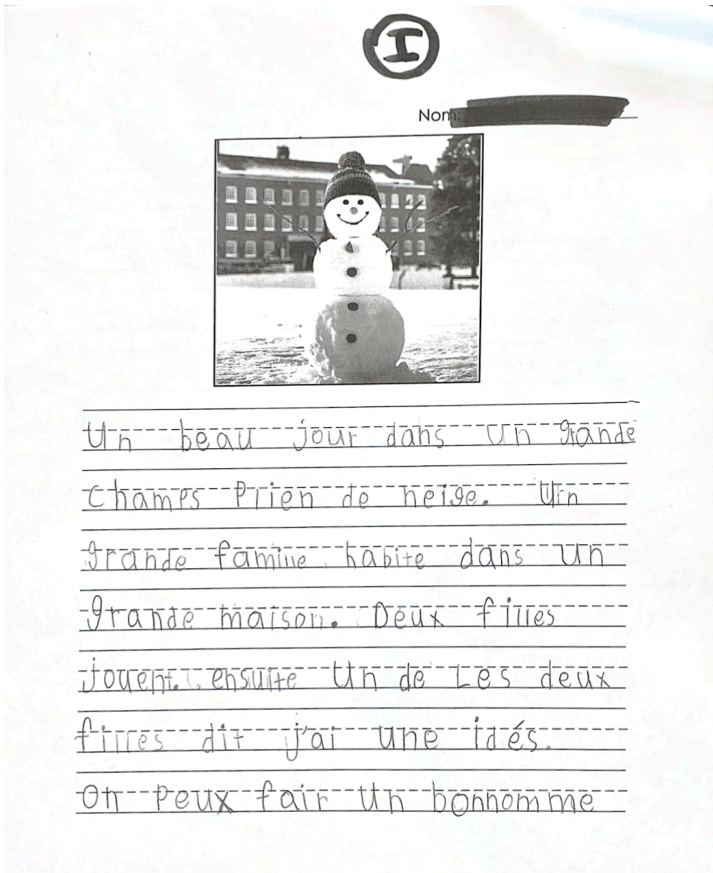 I
Nom:
Un beau jour dans un grande
champs Prien de neige. Un
grande famille habite dans un
grande maison. Deux filles
jouent. ensuite Un de Les deux
filles dit j'ai une idés.
On Peux fair Un bonhomme